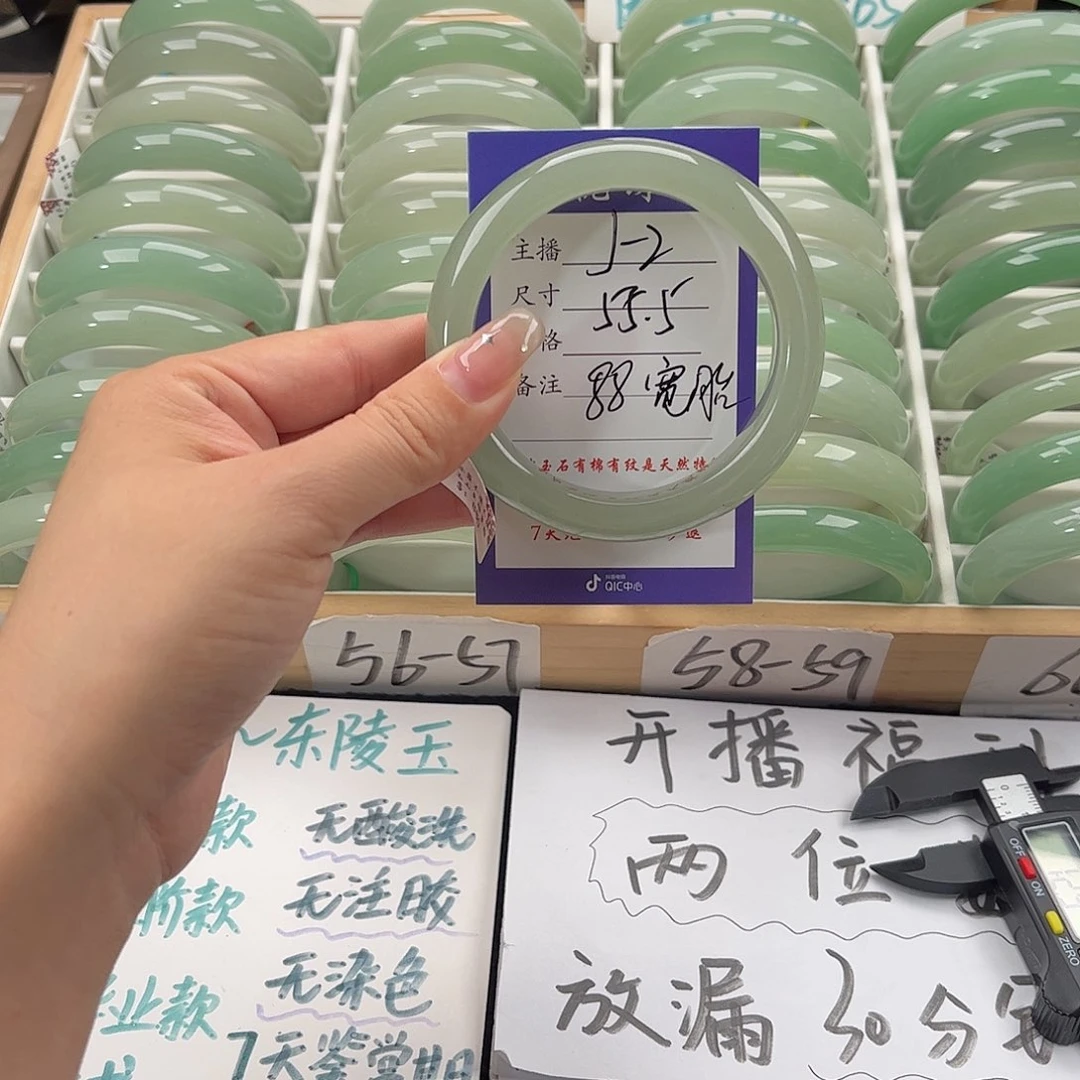 主播 J-2
尺寸 55.5
格
备注 88 宽胎
玉石有棉有纹是天然特
7天
QIC中心
56-57
58-59
东陵玉
款 无酸洗
阶款 无注胶
无染色
业款
7天鉴赏期
开播福利
两位
放漏 30分
OFF
ON
ZERO